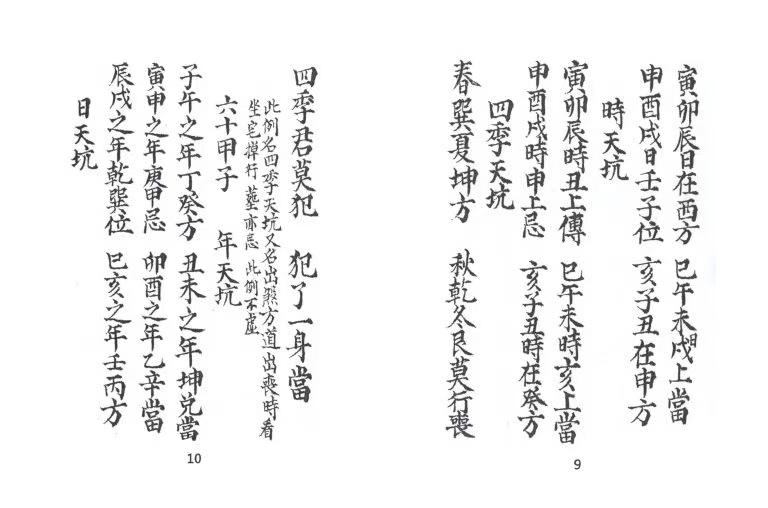 寅卯辰日在西方 巳午未日戌上當
申酉戌日壬子位 亥子丑在申方
時天坑
寅卯辰時丑上傳 巳午未時亥上當
申酉戌時申上忌 亥子丑時在癸方
四季天坑
春巽夏坤方 秋乾冬艮莫行喪
9
四季君莫犯 犯了一身當
此例名四季天坑又名出煞方道出喪時看
坐宅行葬亦忌 此例不虛
六十甲子 年天坑
子午之年丁癸方 丑未之年坤兌當
寅申之年庚甲忌 卯酉之年乙辛當
辰戌之年乾巽位 巳亥之年壬丙方
日天坑
10